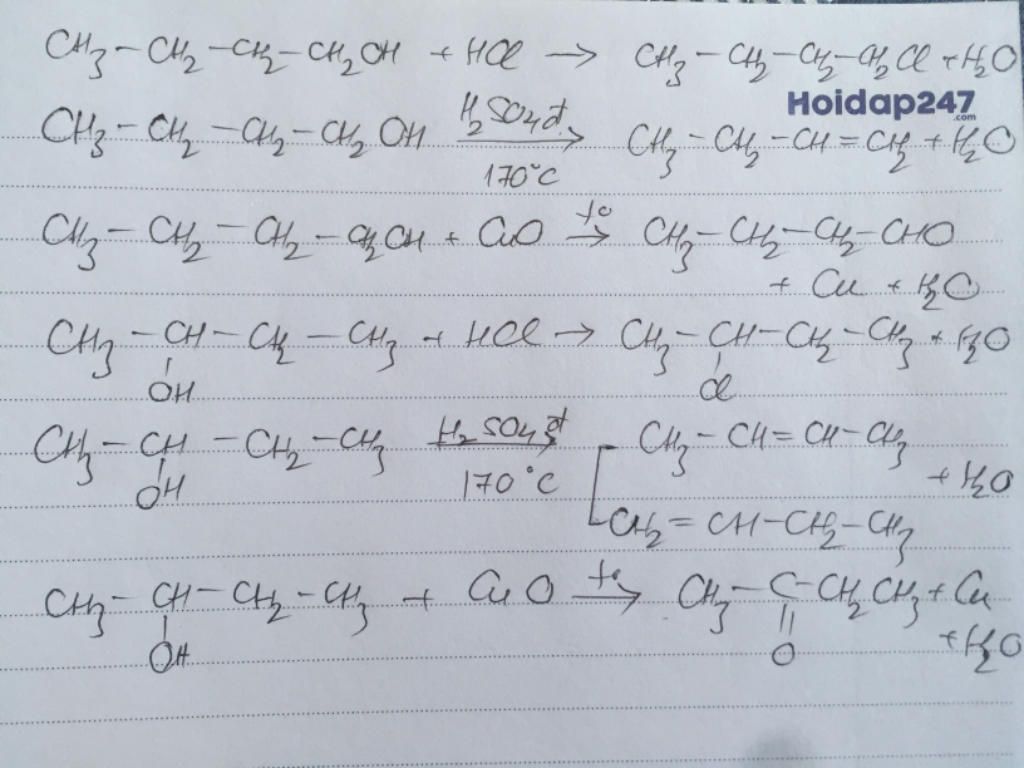 CH3 - CH2 - CH2 - CH2OH + HCl → CH3 - CH2 - CH2 - CH2Cl + H2O
Hoidap247
.com
CH3 - CH2 - CH2 - CH2OH H2SO4đ → CH3 - CH2 - CH = CH2 + H2O
170°C
CH3 - CH2 - CH2 - CH2OH + CuO t° → CH3 - CH2 - CH2 - CHO
+ Cu + H2O
CH3 - CH - CH2 - CH3 + HCl → CH3 - CH - CH2 - CH3 + H2O
OH Cl
CH3 - CH - CH2 - CH3 H2SO4đ CH3 - CH = CH - CH3
OH 170°C + H2O
CH2 = CH - CH2 - CH3
CH3 - CH - CH2 - CH3 + CuO t° → CH3 - C - CH2CH3 + Cu
OH O + H2O